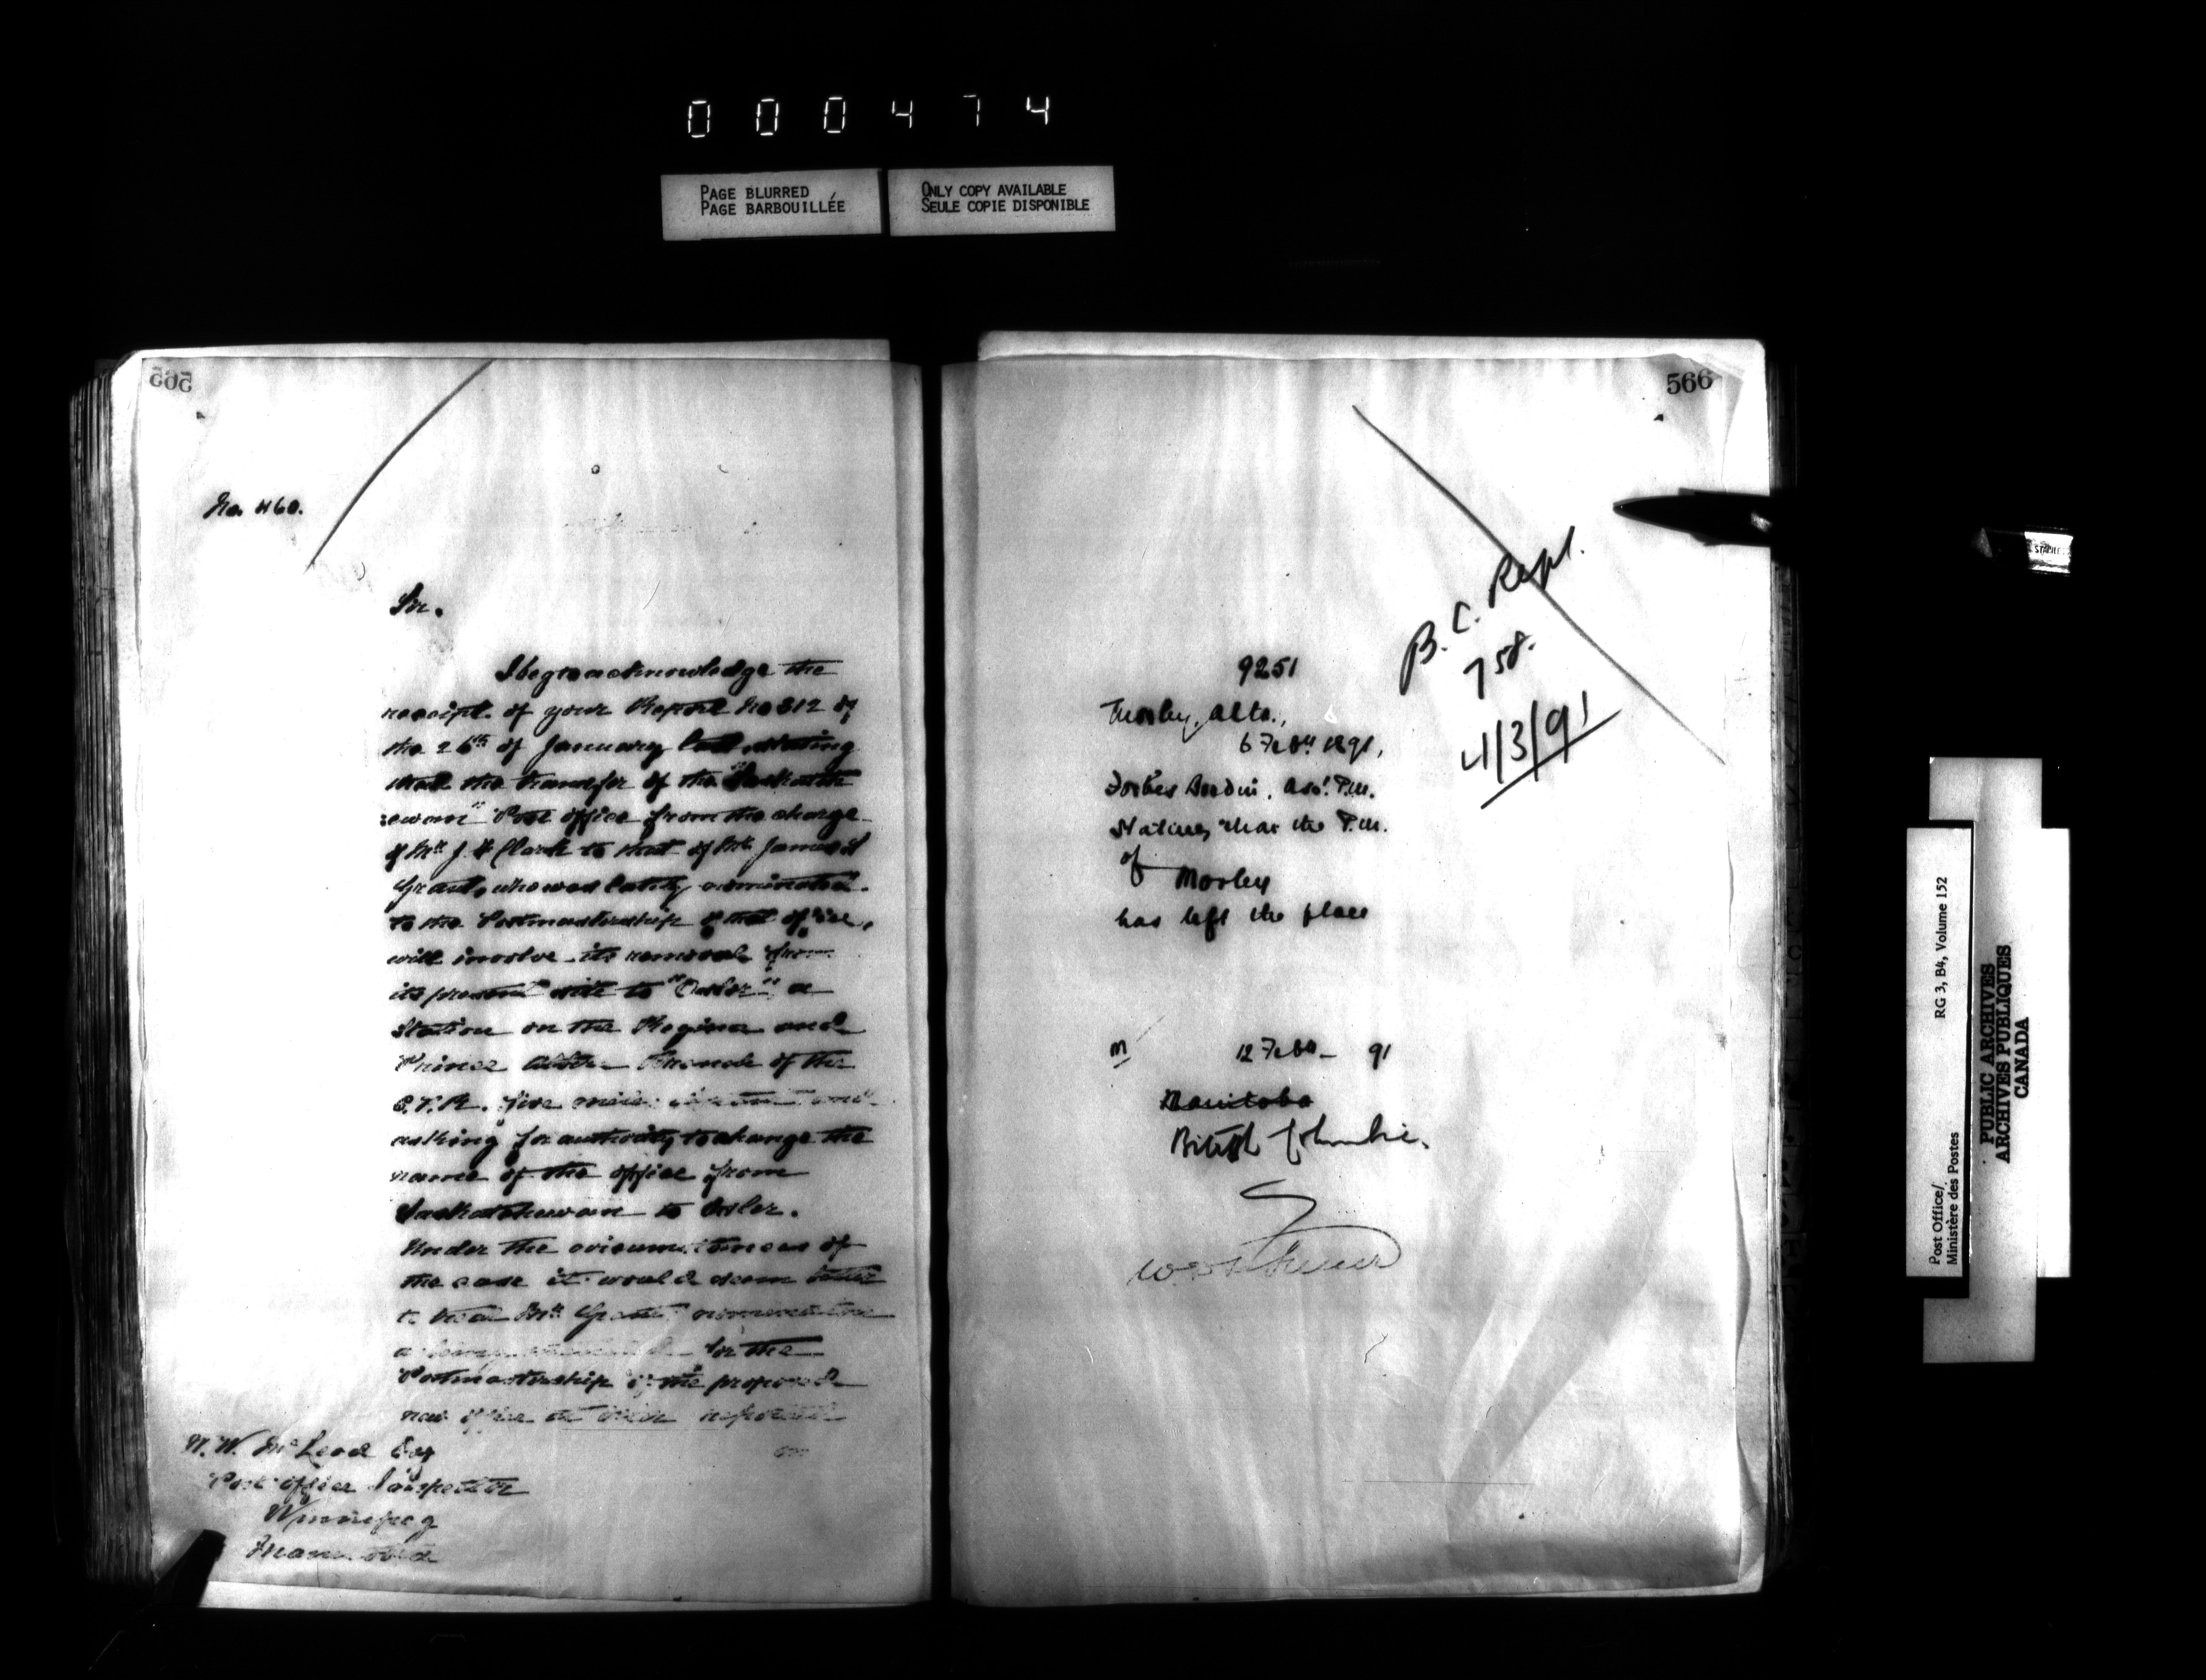 000474
PAGE BLURRED
PAGE BARBOUILLÉE
ONLY COPY AVAILABLE
SEULE COPIE DISPONIBLE
565
No. 460.
Sir.
I beg to acknowledge the
receipt of your Report No 312 of
the 26th of January last, stating
that the transfer of the "Saskatch
:ewan" Post office from the charge
of Mr J. F Clark to that of Mr James
Grant, who was lately nominated
to the Postmastership of that office,
will involve its removal from
its present site to "Osler" a
Station on the Regina and
Prince Albert Branch of the
C.P.R. five miles
asking for authority to change the
name of the office from
Saskatchewan to Osler.
Under the circumstances of
the case it would seem better
to treat Mr Grant's nomination
as for the
Postmastership of the proposed
new office at Osler
on
W. W. McLeod Esq
Post office Inspector
Winnipeg
Manitoba
566
B. C. Rept.
758.
4/3/91
9251
Morley, Alta.,
6 Feby 1891,
Asst. P.M.
Stating that the P.M.
of Morley
has left the place
M 12 Feby 91
Manitoba
British Columbia.
STAPLES
Post Office/
Ministère des Postes
RG 3, B4, Volume 152
PUBLIC ARCHIVES
ARCHIVES PUBLIQUES
CANADA